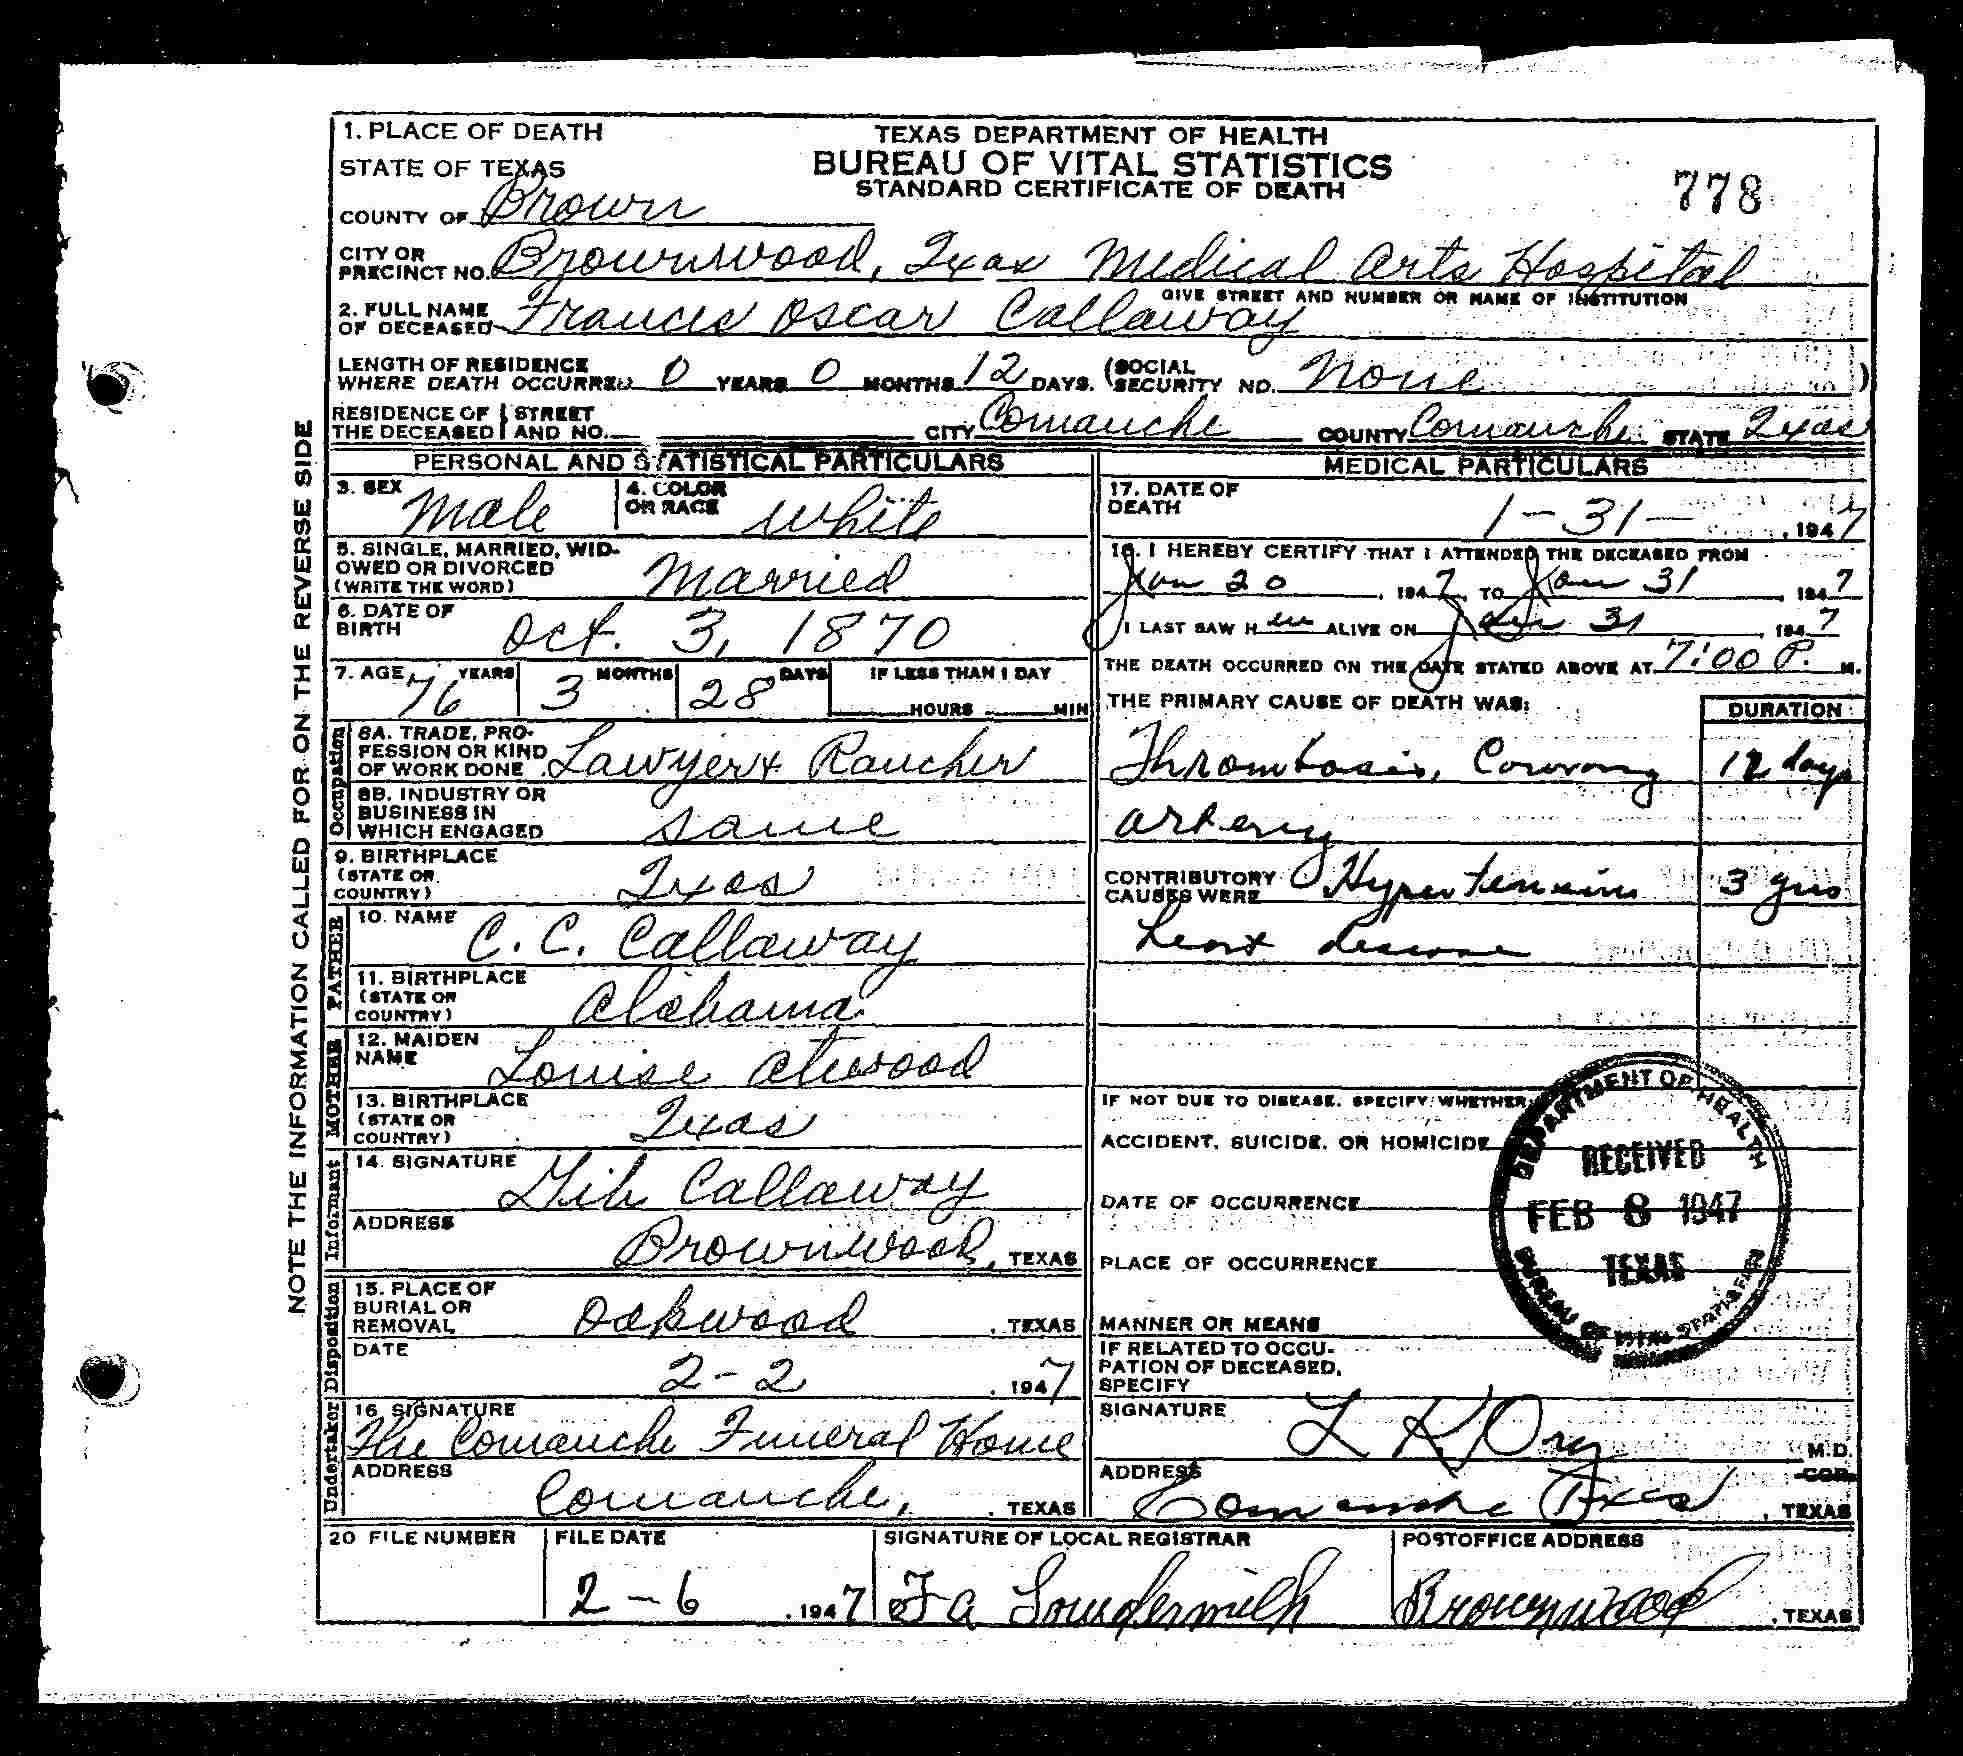 1. PLACE OF DEATH
STATE OF TEXAS
COUNTY OF Brown
TEXAS DEPARTMENT OF HEALTH
BUREAU OF VITAL STATISTICS
STANDARD CERTIFICATE OF DEATH
778
CITY OR PRECINCT NO. Brownwood, Texas Medical Arts Hospital
GIVE STREET AND NUMBER OR NAME OF INSTITUTION
2. FULL NAME OF DECEASED Francis Oscar Callaway
LENGTH OF RESIDENCE WHERE DEATH OCCURRED 0 YEARS 0 MONTHS 12 DAYS. (SOCIAL SECURITY NO. None )
RESIDENCE OF THE DECEASED STREET AND NO. CITY Comanche COUNTY Comanche STATE Texas
NOTE THE INFORMATION CALLED FOR ON THE REVERSE SIDE
PERSONAL AND STATISTICAL PARTICULARS
3. SEX Male
4. COLOR OR RACE White
5. SINGLE, MARRIED, WIDOWED OR DIVORCED (WRITE THE WORD) Married
6. DATE OF BIRTH Oct. 3, 1870
7. AGE 76 YEARS 3 MONTHS 28 DAYS IF LESS THAN 1 DAY
HOURS MIN
Occupation
8A. TRADE, PROFESSION OR KIND OF WORK DONE Lawyer & Rancher
8B. INDUSTRY OR BUSINESS IN WHICH ENGAGED Same
9. BIRTHPLACE (STATE OR COUNTRY) Texas
FATHER
10. NAME C. C. Callaway
11. BIRTHPLACE (STATE OR COUNTRY) Alabama
MOTHER
12. MAIDEN NAME Louise Atwood
13. BIRTHPLACE (STATE OR COUNTRY) Texas
Informant
14. SIGNATURE Gib Callaway
ADDRESS Brownwood, TEXAS
Disposition
15. PLACE OF BURIAL OR REMOVAL Oakwood , TEXAS
DATE 2-2 , 1947
Undertaker
16. SIGNATURE The Comanche Funeral Home
ADDRESS Comanche, , TEXAS
MEDICAL PARTICULARS
17. DATE OF DEATH 1-31- , 1947
18. I HEREBY CERTIFY THAT I ATTENDED THE DECEASED FROM
Jan 20 , 1947, TO Jan 31 , 1947
I LAST SAW H im ALIVE ON Jan 31 , 1947
THE DEATH OCCURRED ON THE DATE STATED ABOVE AT 7:00 P. M.
THE PRIMARY CAUSE OF DEATH WAS: DURATION
Thrombosis, Coronary 12 days
artery
CONTRIBUTORY CAUSES WERE Hypertension 3 yrs
heart disease
IF NOT DUE TO DISEASE, SPECIFY WHETHER:
ACCIDENT, SUICIDE, OR HOMICIDE
DATE OF OCCURRENCE
PLACE OF OCCURRENCE
MANNER OR MEANS
IF RELATED TO OCCUPATION OF DECEASED, SPECIFY
DEPARTMENT OF HEALTH
RECEIVED
FEB 8 1947
TEXAS
BUREAU OF VITAL STATISTICS
SIGNATURE L K Ory M.D.
COR.
ADDRESS Comanche Texas , TEXAS
20 FILE NUMBER
FILE DATE 2-6 , 1947
SIGNATURE OF LOCAL REGISTRAR
POSTOFFICE ADDRESS Brownwood , TEXAS